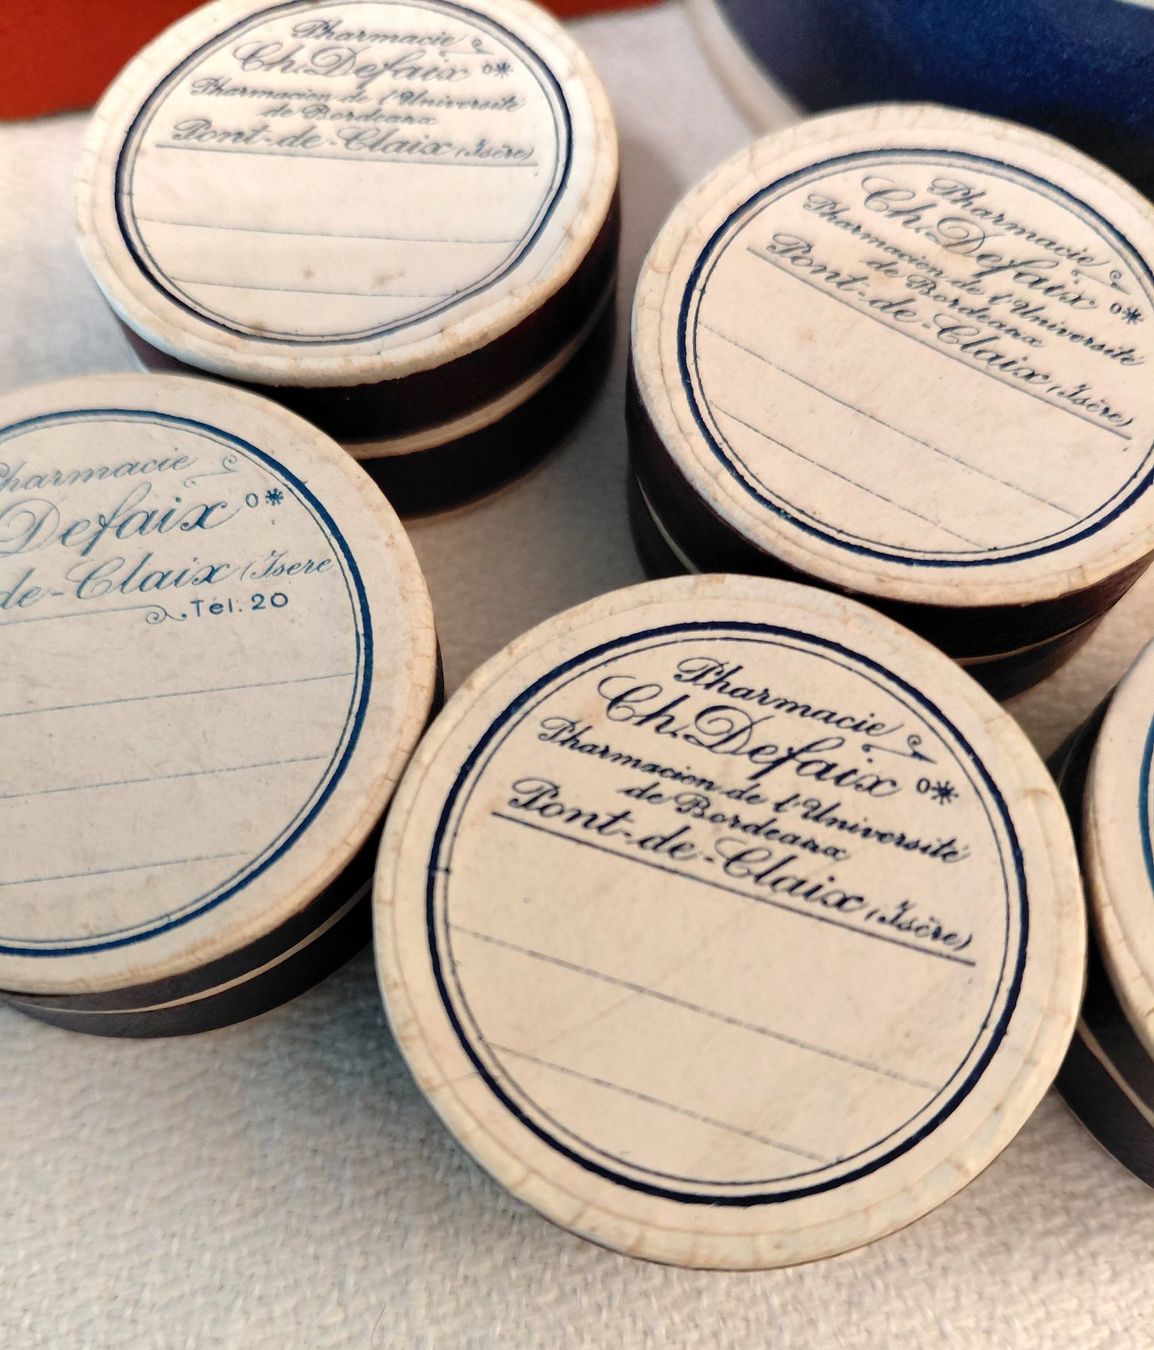 Pharmacie
Ch. Defaix o*
Pharmacien de l'Université
de Bordeaux
Pont-de-Claix (Isère)
Pharmacie
Ch. Defaix o*
Pharmacien de l'Université
de Bordeaux
Pont-de-Claix (Isère)
Pharmacie
Defaix o*
de-Claix (Isere
Tél: 20
Pharmacie
Ch. Defaix o*
Pharmacien de l'Université
de Bordeaux
Pont-de-Claix (Isère)